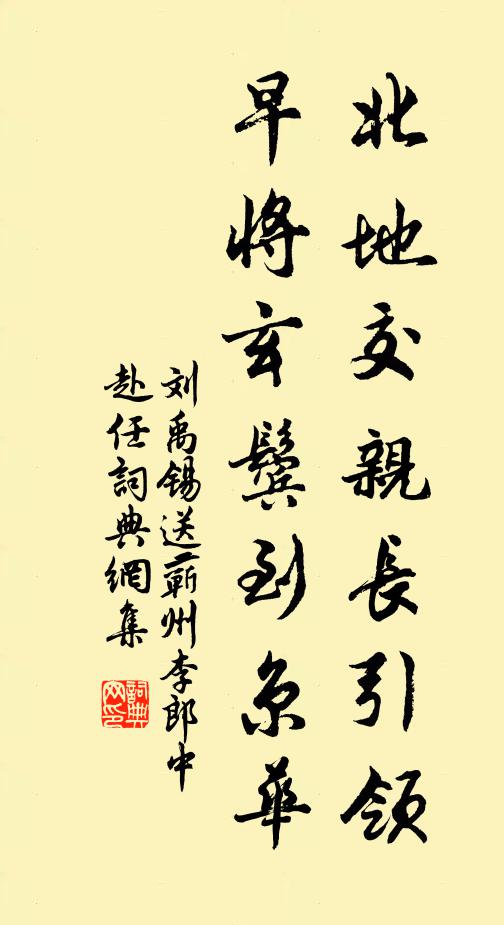 北地交親長引領
早將玄鬓到京華
刘禹锡送蕲州李郎中
赴任詞典網集
詞典
网印